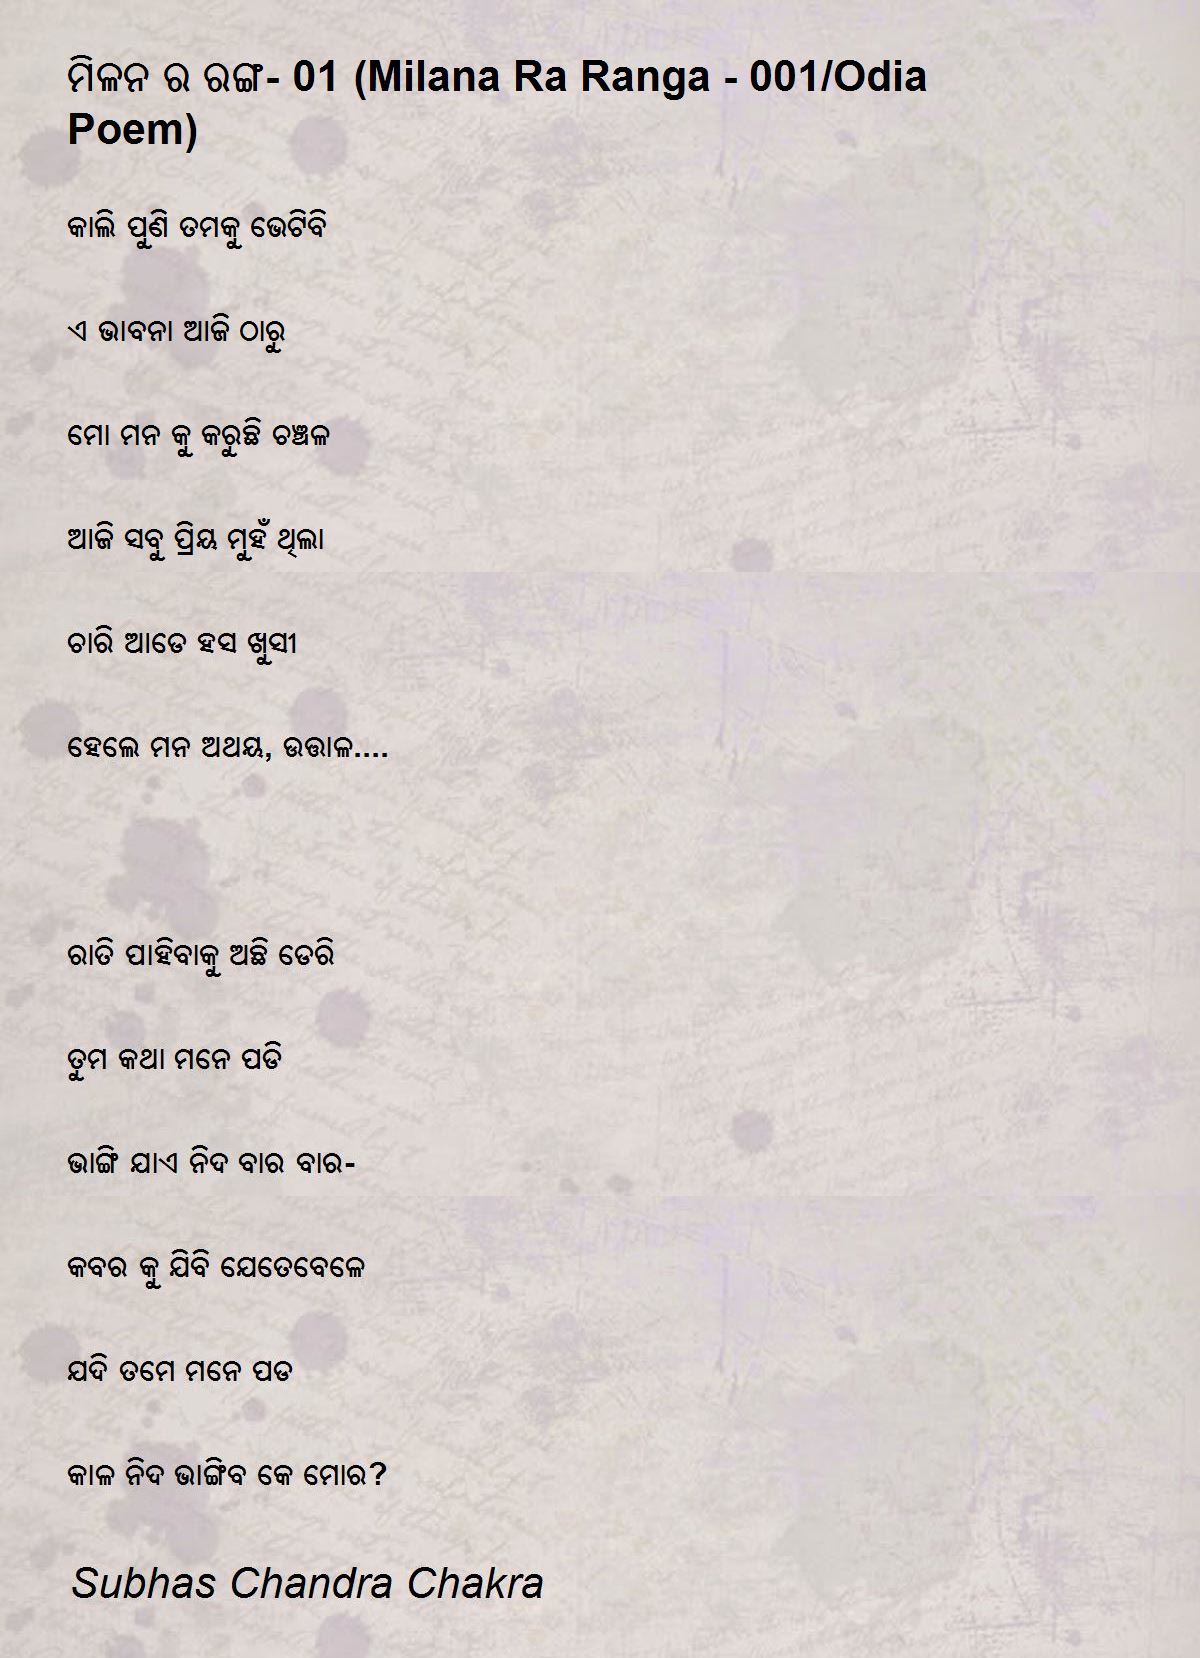 ମିଳନ ର ରଙ୍ଗ- 01 (Milana Ra Ranga - 001/Odia
Poem)
କାଲି ପୁଣି ତମକୁ ଭେଟିବି
ଏ ଭାବନା ଆଜି ଠାରୁ
ମୋ ମନ କୁ କରୁଛି ଚଞ୍ଚଳ
ଆଜି ସବୁ ପ୍ରିୟ ମୁହଁ ଥିଲା
ଚାରି ଆଡେ ହସ ଖୁସୀ
ହେଲେ ମନ ଅଥୟ, ଉତ୍ତାଳ....
ରାତି ପାହିବାକୁ ଅଛି ଡେରି
ତୁମ କଥା ମନେ ପଡି
ଭାଙ୍ଗି ଯାଏ ନିଦ ବାର ବାର-
କବର କୁ ଯିବି ଯେତେବେଳେ
ଯଦି ତମେ ମନେ ପଡ
କାଳ ନିଦ ଭାଙ୍ଗିବ କେ ମୋର?
Subhas Chandra Chakra